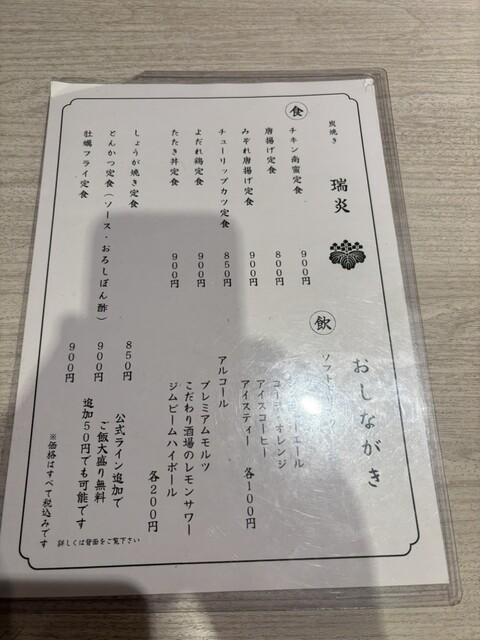 炭焼き
瑞炎
おしながき
食
チキン南蛮定食 900円
唐揚げ定食 800円
みぞれ唐揚げ定食 900円
チューリップカツ定食 850円
よだれ鶏定食 900円
たたき丼定食 900円
しょうが焼き定食 850円
とんかつ定食(ソース・おろしぽん酢) 900円
牡蠣フライ定食 900円
飲
ソフト
エール
オレンジ
アイスコーヒー
アイスティー 各100円
アルコール
プレミアムモルツ
こだわり酒場のレモンサワー
ジムビームハイボール
各200円
公式ライン追加で
ご飯大盛り無料
追加50円でも可能です
※価格はすべて税込みです
詳しくは背面をご覧下さい